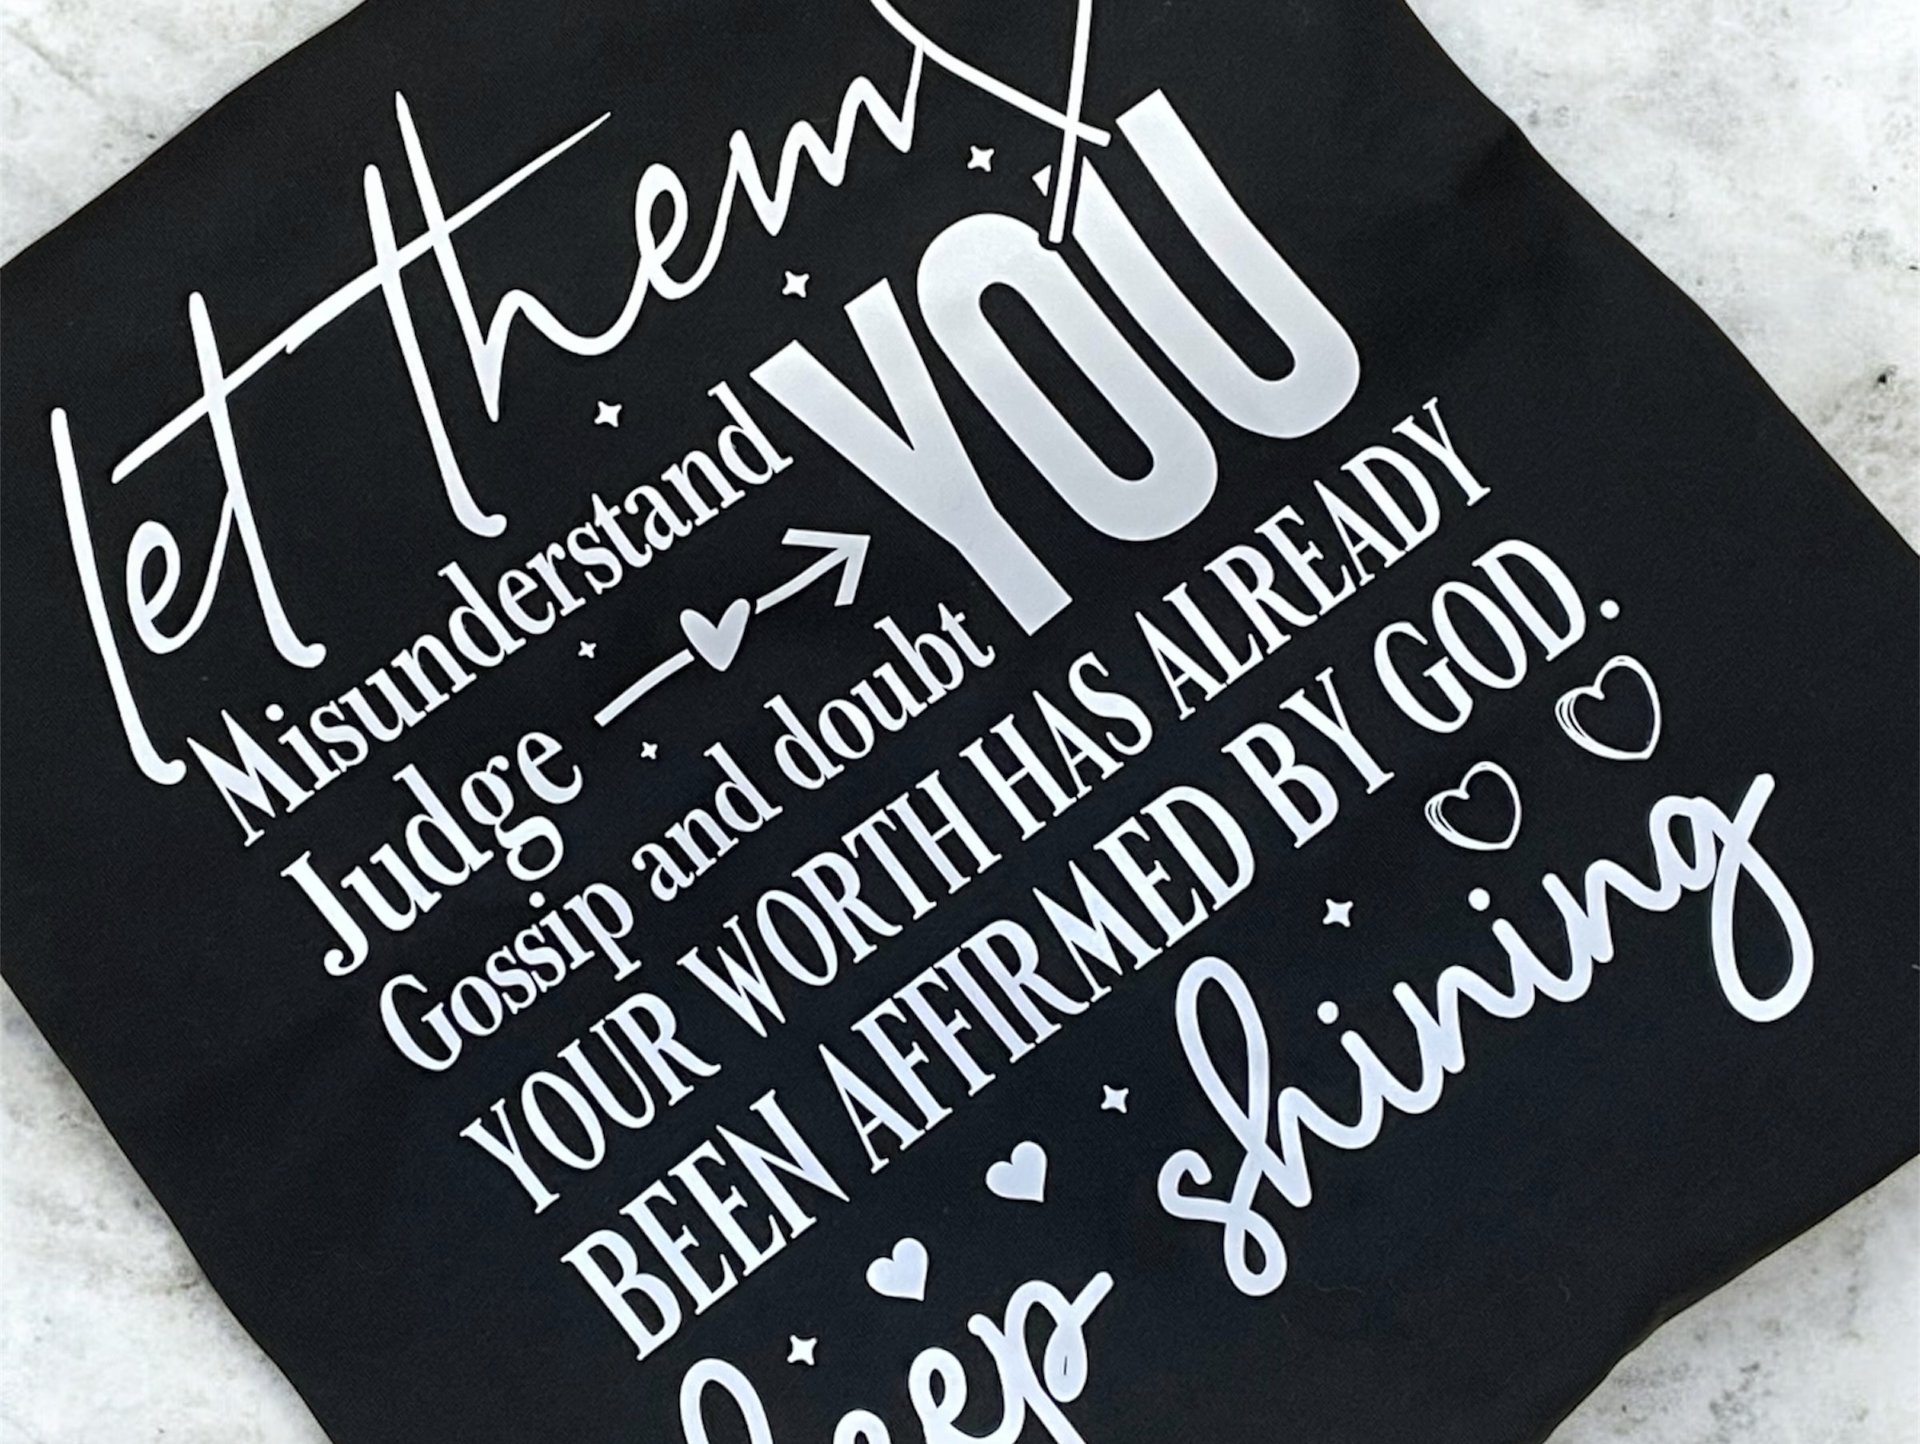 let them
Misunderstand
Judge
YOU
Gossip and doubt
YOUR WORTH HAS ALREADY
BEEN AFFIRMED BY GOD.
keep shining